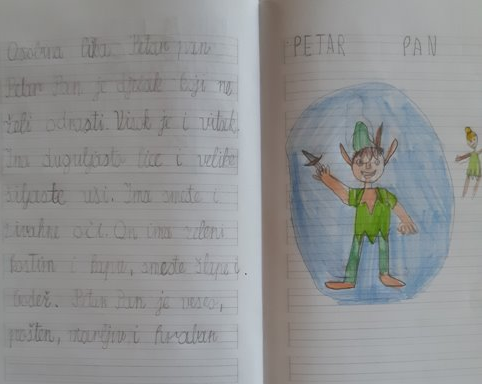 Osobina lika Petar pan
Petar Pan je dječak koji ne
želi odrasti. Visok je i vitak.
Ima duguljasto lice i velike
šiljaste uši. Ima smeđe i
živahne oči. On ima zeleni
kostim i kapu, smeđe šlape i
bodež. Petar Pan je veseo,
pošten, marljiv i hrabar
PETAR PAN